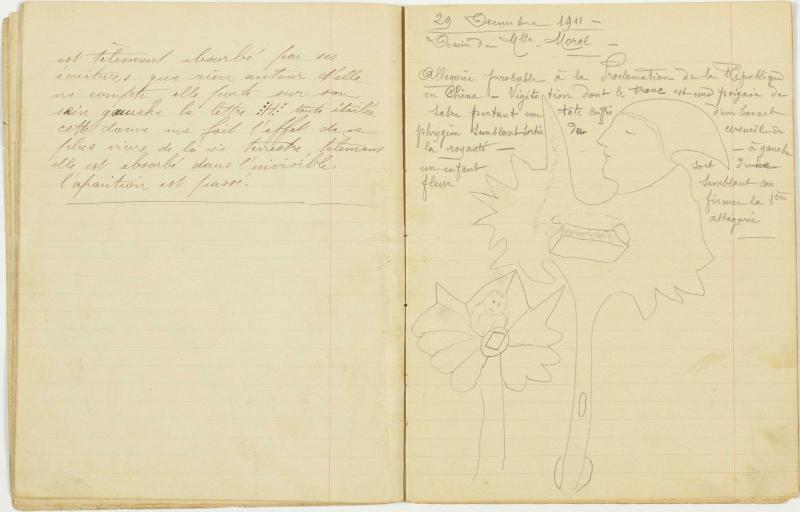 est tèlement absorbé par ses
écritures, que rien autour d'elle
ne compte elle porte sur son
sein gauche la lettre toute étoilée
cette dame me fait l'effet de ne
plus vivre de la vie terrestre, tèlement
elle est absorbé dans l'invisible.
l'aparition est passé.
29 Décembre 1911 —
Dessin de Mlle. Morel —
Allégorie probable à la Proclamation de la République
en Chine — Végétation dont le tronc est une poignée de
sabre portant une tête coiffée d'un bonnet
phrygien semblant sortir du cercueil de
la royauté — — à gauche
un enfant sort d'une
fleur semblant con
firmer la 1ère
allégorie